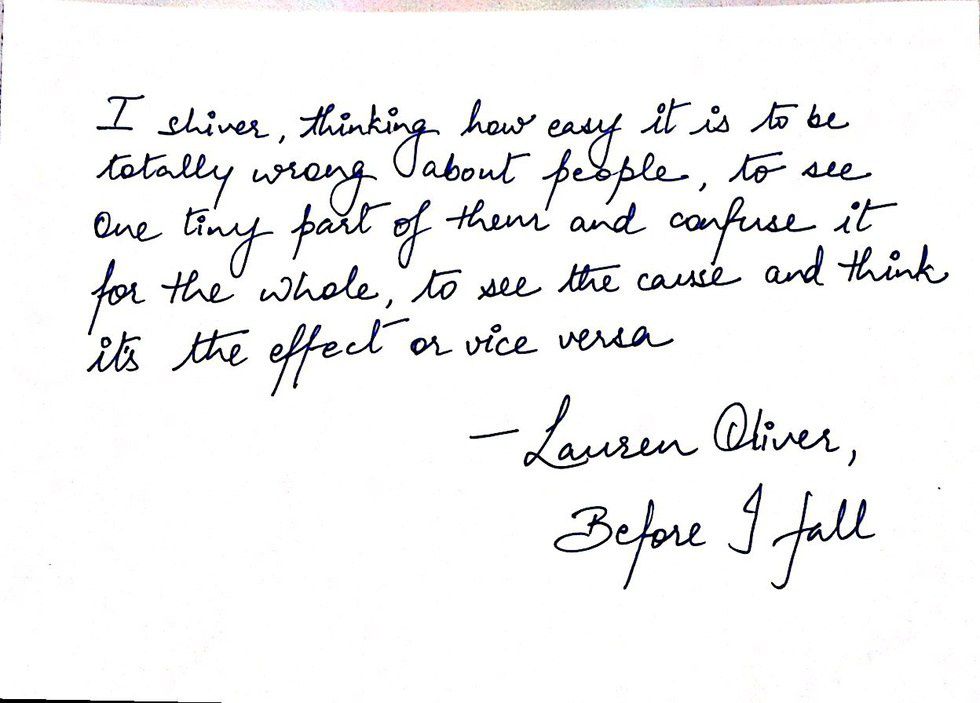 I shiver, thinking how easy it is to be
totally wrong about people, to see
one tiny part of them and confuse it
for the whole, to see the cause and think
it's the effect or vice versa
— Lauren Oliver,
Before I fall